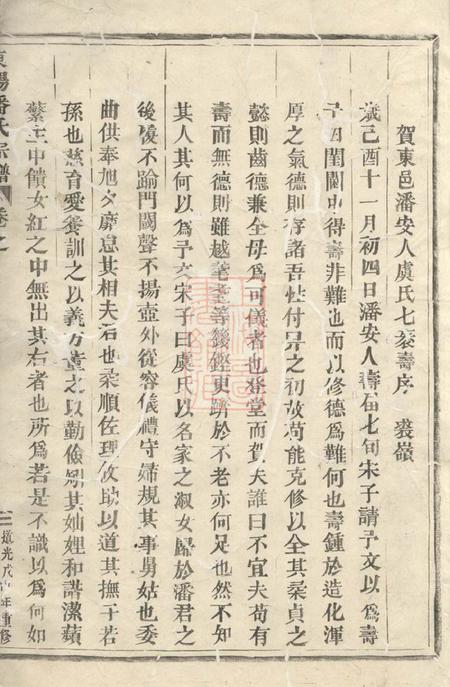 賀東邑潘安人虞氏七袠壽序　裘嶺
歲己酉十一月初四日潘安人壽届七旬宋子請予文以為壽
予曰閨閫中得壽非難也而以修德為難何也壽鍾於造化渾
厚之氣德則存諸吾性付畀之初故苟能克修以全其柔貞之
懿則齒德兼全母為可儀者也登堂而賀夫誰曰不宜夫苟有
壽而無德則雖越耄耋等籛鏗更躋於不老亦何足也然不知
其人其何以為予文宋子曰虞氏以名家之淑女歸於潘君之
後履不踰門閾聲不揚壺外從容儀禮守婦規其事舅姑也委
曲供奉旭夕靡怠其相夫君也柔順佐理攸助以道其撫干若
孫也慈育愛養訓之以義方董之以勤儉矧其妯娌和諧潔蘋
蘩主中饋女紅之中無出其右者也所為若是不識以為何如
東陽潘氏宗譜　卷之
道光戊申年重修